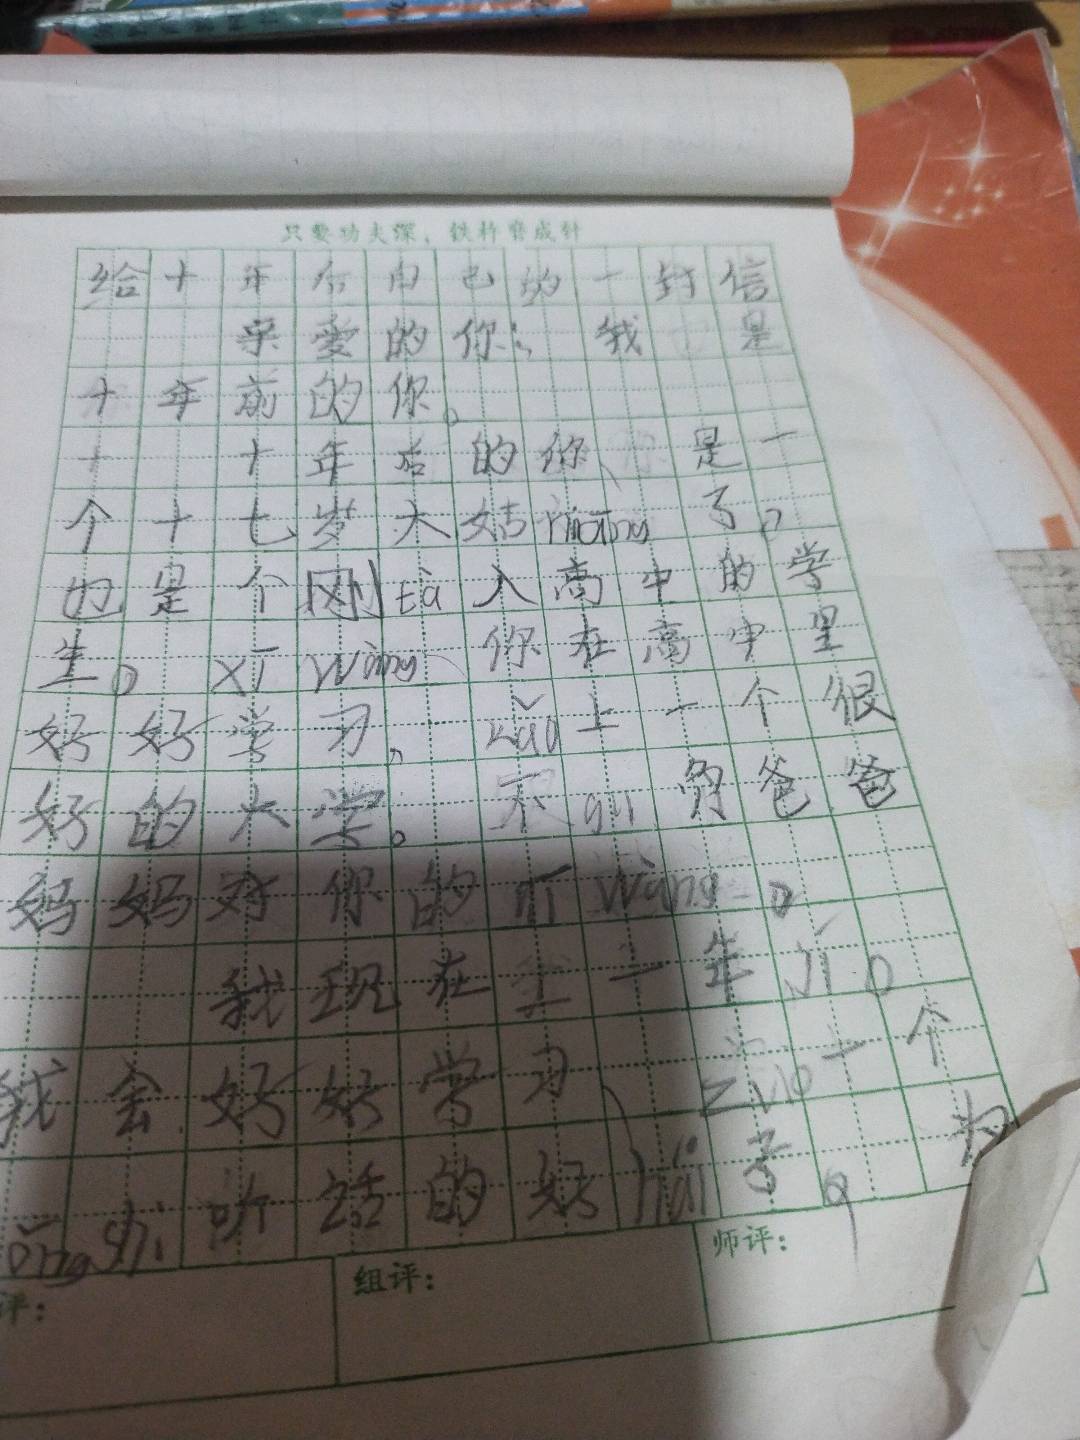 只要功夫深，铁杵磨成针
给十年后自己的一封信
亲爱的你：我是
十年前的你。
十年后的你、是一
个十七岁大姑niáng了。
也是个刚tà入高中的学
生。xī wàng、你在高中里
好好学习、kǎo上一个很
好的大学。不gū 负爸爸
妈妈对你的qī wàng。
我现在上二年jí。
我会好好学习、zuò一个
dǒng shì 听话的好hái子。
评：
组评：
师评：